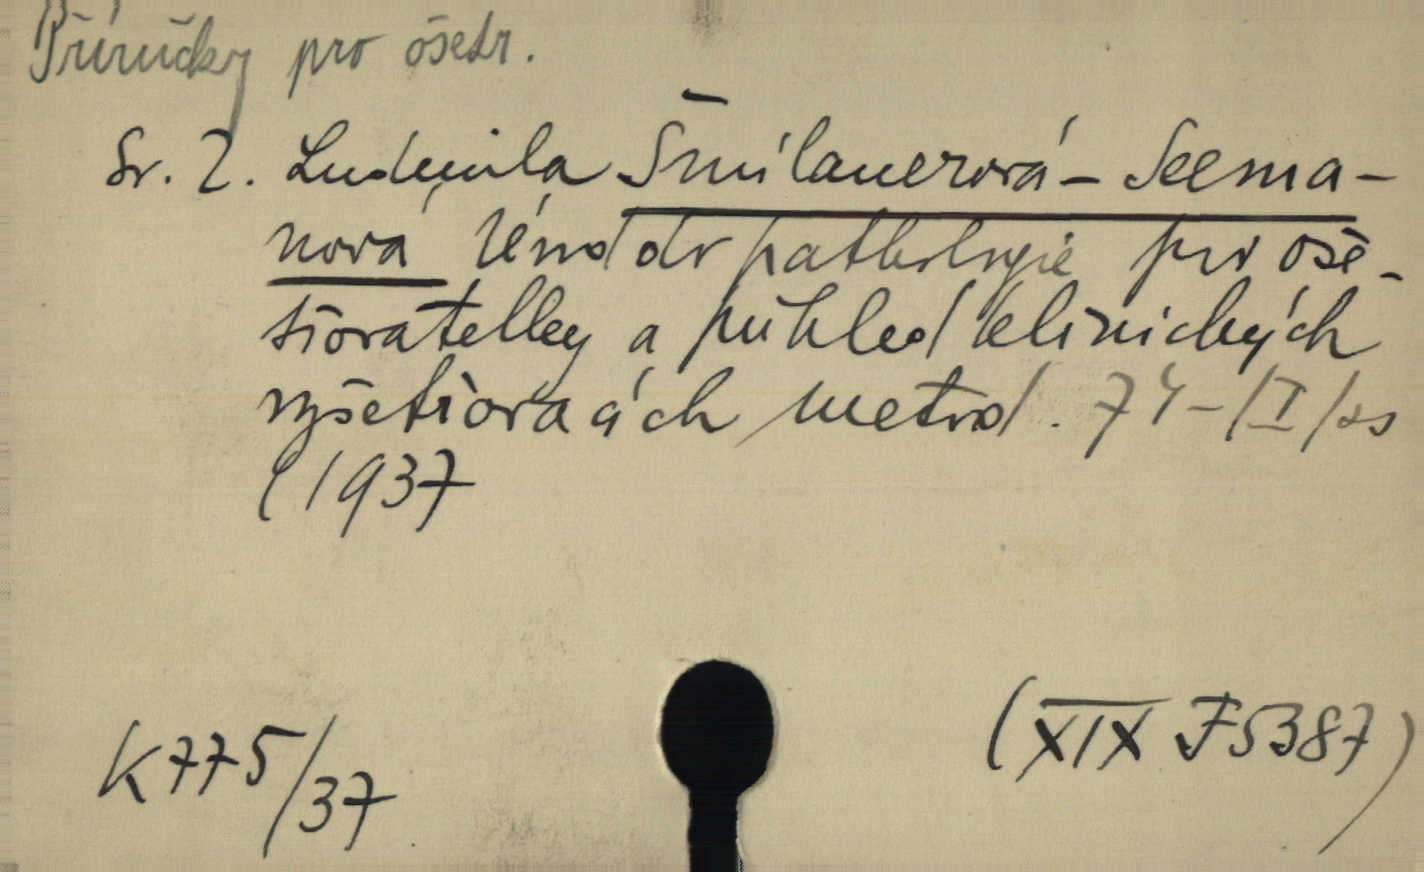 Příručky pro ošetr.
Sv. 2. Ludmila Šmilauerová - Seema-
nová Úvod do pathologie pro oše-
třovatelky a přehled klinických
vyšetřovacích metod. 74-/I/ss
(1937
K775/37
(XIX F5387)